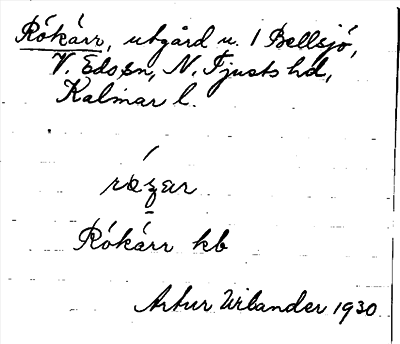 Rókárr, utgård u. 1 Bellsjö,
V. Eds sn, N. Tjusts hd,
Kalmar l.
rózar
Rókárr kb
Artur Wilander 1930